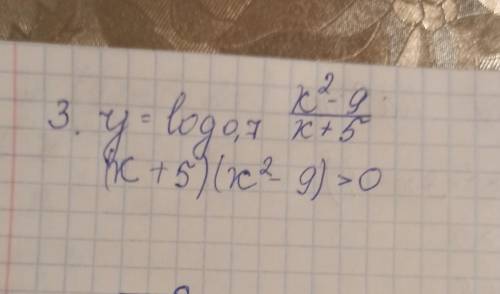 3. y = log0,7 (x² - 9)/(x + 5)
(x + 5)(x² - 9) > 0